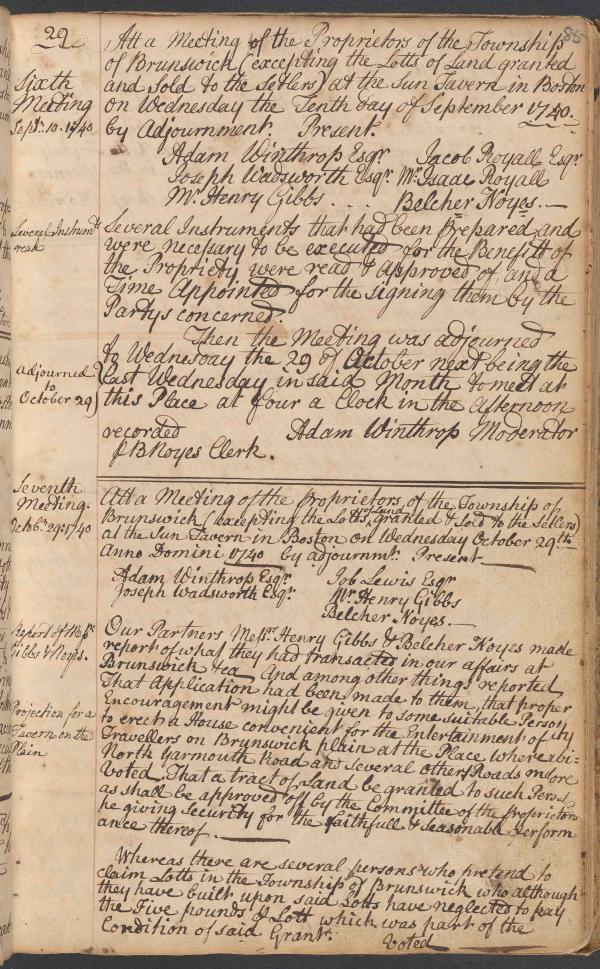 29
85
Att a Meeting of the Proprietors of the Township
of Brunswick (excepting the Lotts of Land granted
and Sold to the Setlers) at the Sun Tavern in Boston
on Wednesday the Tenth day of September 1740.
by Adjournment. Present.
Sixth
Meeting
Sept. 10. 1740
Adam Winthrop Esqr. Jacob Royall Esqr
Joseph Wadsworth Esqr. Mr. Isaac Royall
Mr. Henry Gibbs . . . Belcher Noyes.—
Several Instrumts
read
Several Instruments that had been prepared and
were necessary to be executed for the Benefitt of
the Propriety were read & approved of, and a
Time Appointed for the signing them by the
Partys concerned.
Then the Meeting was adjourned
to Wednesday the 29 of October next being the
Last Wednesday in said Month to meet at
this Place at four a Clock in the afternoon
adjourned
to
October 29
recorded Adam Winthrop Moderator
BNoyes Clerk.
Seventh
Meeting.
Octobr. 29: 1740
Att a Meeting of the Proprietors of the Township of
Brunswick (excepting the Lotts of Land granted & Sold to the Setlers)
at the Sun Tavern in Boston on Wednesday October 29th
Anno Domini 1740 by adjournmt. Present.—
Adam Winthrop Esqr. Job Lewis Esqr
Joseph Wadsworth Esqr. Mr. Henry Gibbs
Belcher Noyes.—
Report of Messrs
Gibbs & Noyes.
Our Partners Messrs. Henry Gibbs & Belcher Noyes made
report of what they had transacted in our affairs at
Brunswick &ca And among other things reported
That Application had been made to them, that proper
Encouragement might be given to some suitable Person
to erect a House convenient for the Entertainment of
Travellers on Brunswick plain at the Place where
North Yarmouth Road and several others Roads
Voted. That a tract of Land be granted to such Person
as shall be approved off by the Committee of the Proprietors
he giving Security for the faithfull & seasonable perform
ance thereof.
Projection for a
Tavern on the
Plain
Whereas there are several persons who pretend to
claim Lotts in the Township of Brunswick who although
they have built upon said Lotts have neglected to pay
the Five pounds Lott which was part of the
Condition of said Grant.
Voted